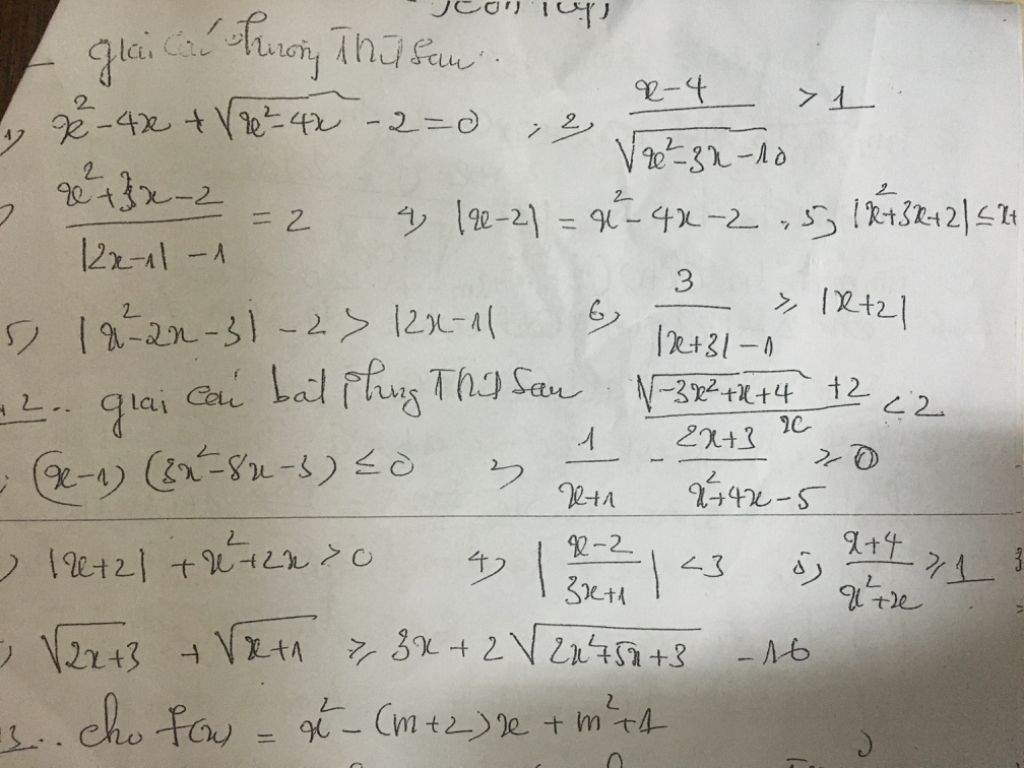 giải các phương trình sau.
1) x² - 4x + √(x² - 4x) - 2 = 0 ; 2) (x - 4)/√(x² - 3x - 10) > 1
(x² + 3x - 2)/(|2x - 1| - 1) = 2 4) |x - 2| = x² - 4x - 2 . 5) |x² + 3x + 2| ≤ x +
5) |x² - 2x - 3| - 2 > |2x - 1| 6) 3/(|x + 3| - 1) ≥ |x + 2|
2.. giải các bất phương trình sau (√(-3x² + x + 4) + 2)/x < 2
(x - 1)(3x² - 8x - 3) ≤ 0 1/(x + 1) - (2x + 3)/(x² + 4x - 5) ≥ 0
) |x + 2| + x² + 2x > 0 4) |(x - 2)/(3x + 1)| < 3 5) (x + 4)/(x² + x) ≥ 1
) √(2x + 3) + √(x + 1) ≥ 3x + 2√(2x² + 5x + 3) - 16
3.. cho f(x) = x² - (m + 2)x + m² + 1